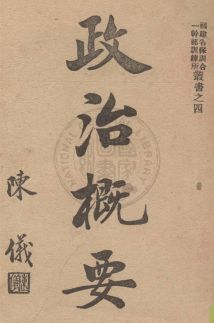 福建省保訓合
一幹部訓練所
叢書之四
政治概要
陳儀